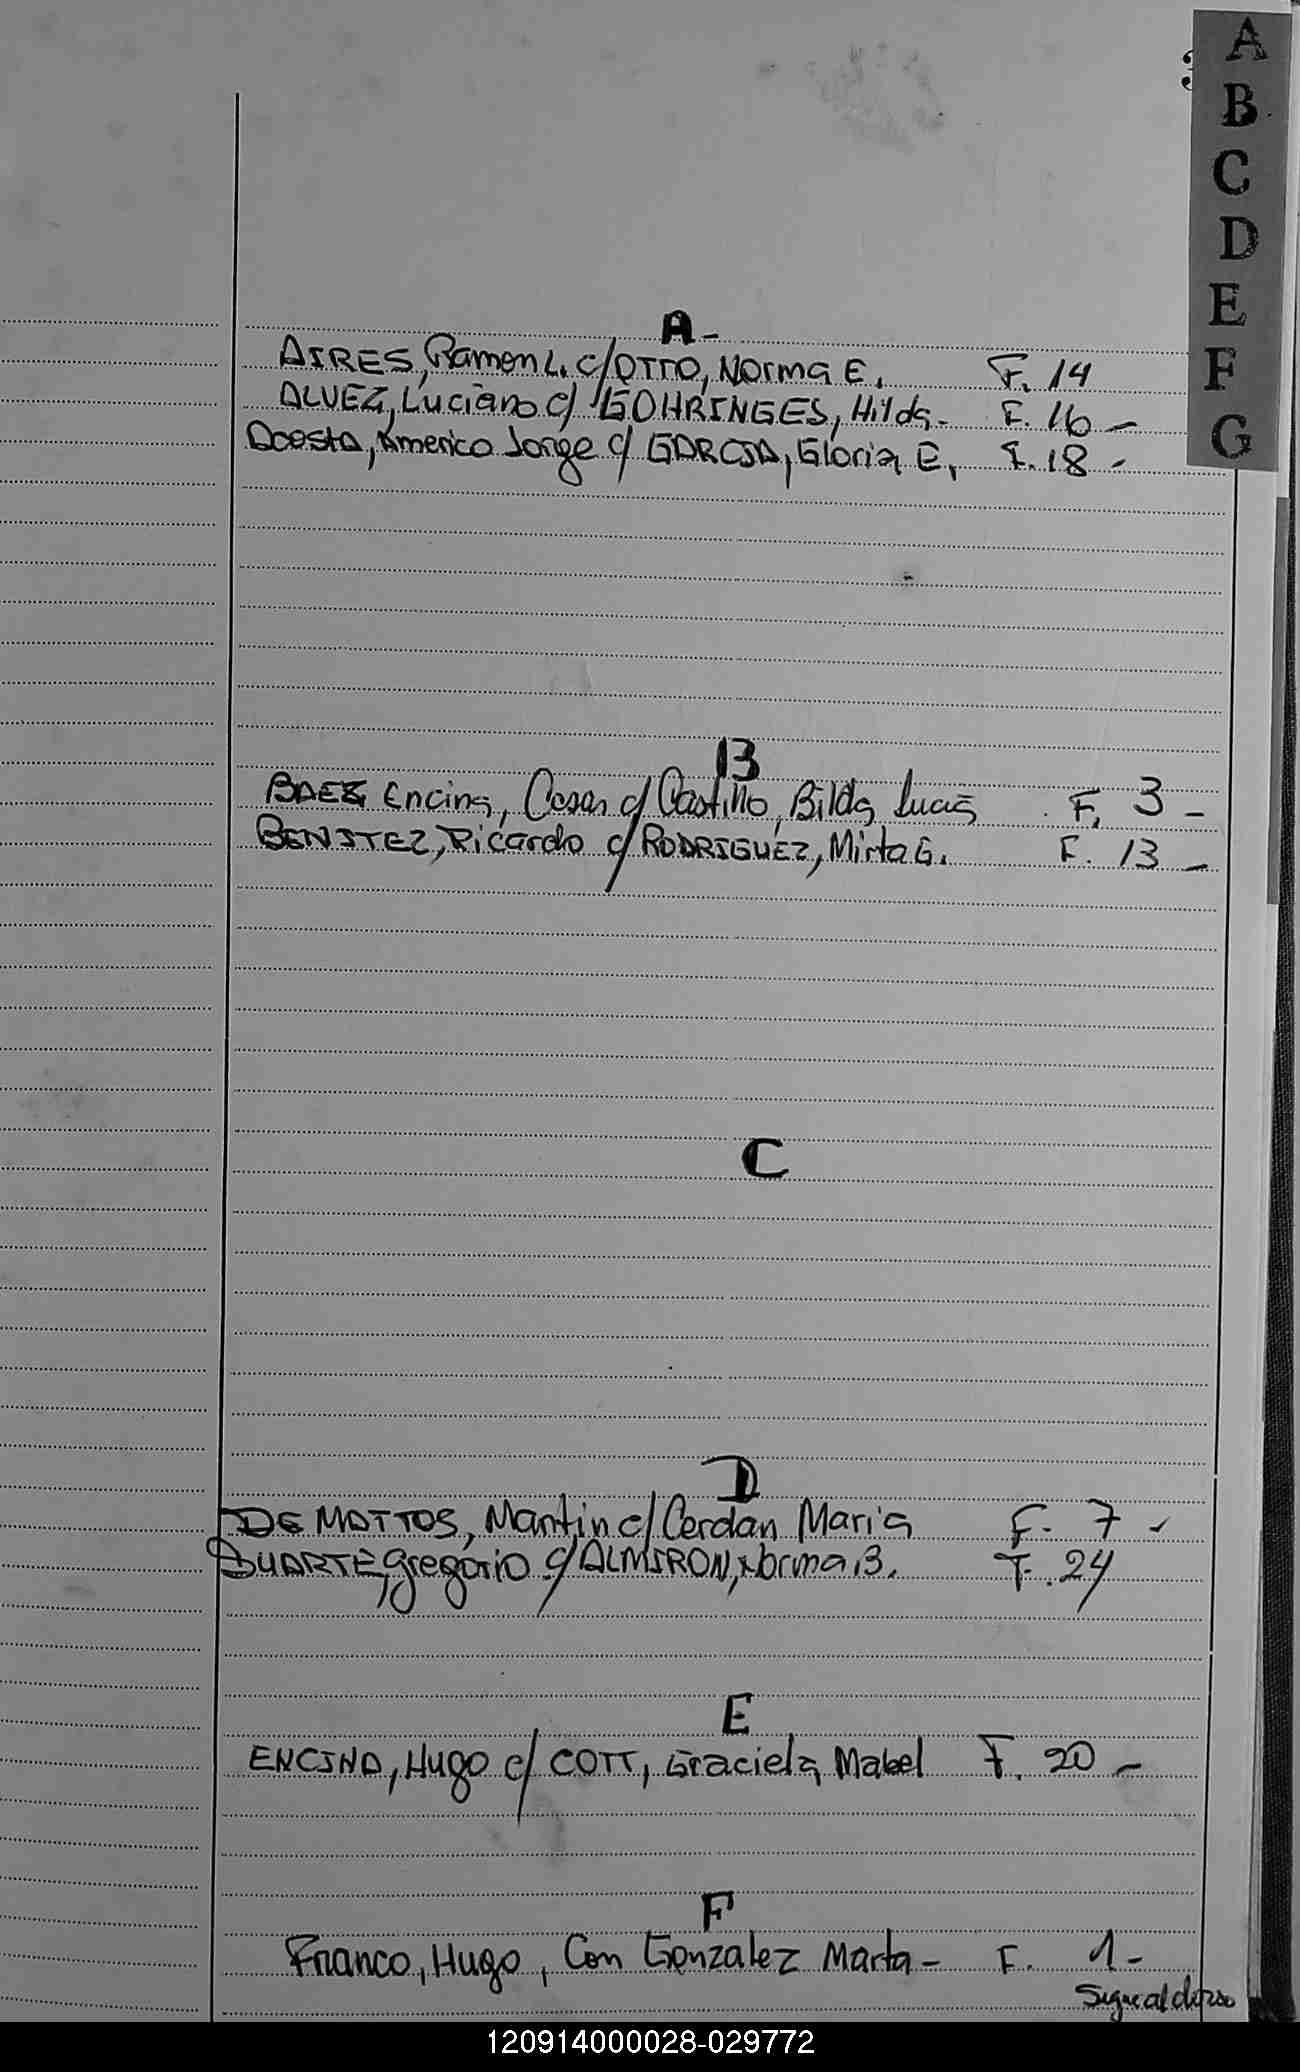 A
B
C
D
E
F
G
A-
AIRES, Ramon L. c/OTTO, Norma E. F. 14
ALVEZ, Luciano c/ GOHRINGES, Hilda- F. 16-
Acosta, Americo Jorge c/ GARCIA, Gloria E, F. 18-
B
BAEZ Encina, Cesar c/ Castillo, Bilda Lucia F. 3-
BENITEZ, Ricardo c/RODRIGUEZ, Mirta G. F. 13-
C
D
DE MATTOS, Martin c/ Cerdan Maria F. 7-
DUARTE, Gregorio c/ ALMIRON, Norma B. F. 24
E
ENCINA, Hugo c/ COTT, Graciela Mabel F. 20-
F
Franco, Hugo, Con Gonzalez Marta- F. 1-
Sigue al dorso
120914000028-029772